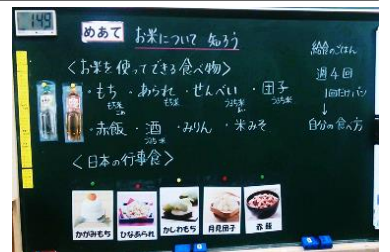 149
めあて お米について 知ろう
<お米を使ってできる食べ物>
・もち ・あられ ・せんべい ・団子
もち米 もち米 うるち米 うるち米
・赤飯 ・酒 ・みりん ・米みそ
うるち米
<日本の行事食>
かがみもち ひなあられ かしわもち 月見団子 赤飯
給食のごはん
週4回
1回だけパン
↓
自分の食べ方